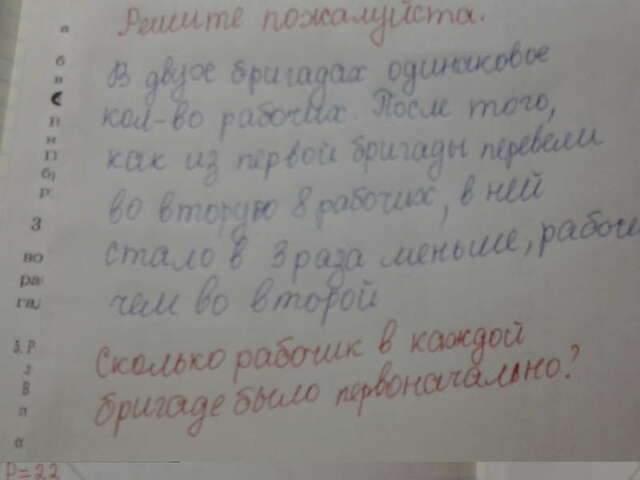 Решите пожалуйста.
В двух бригадах одинаковое
кол-во рабочих. После того,
как из первой бригады перевели
во вторую 8 рабочих, в ней
стало в 3 раза меньше, рабочи
чем во второй
Сколько рабочих в каждой
бригаде было первоначально?
P=22